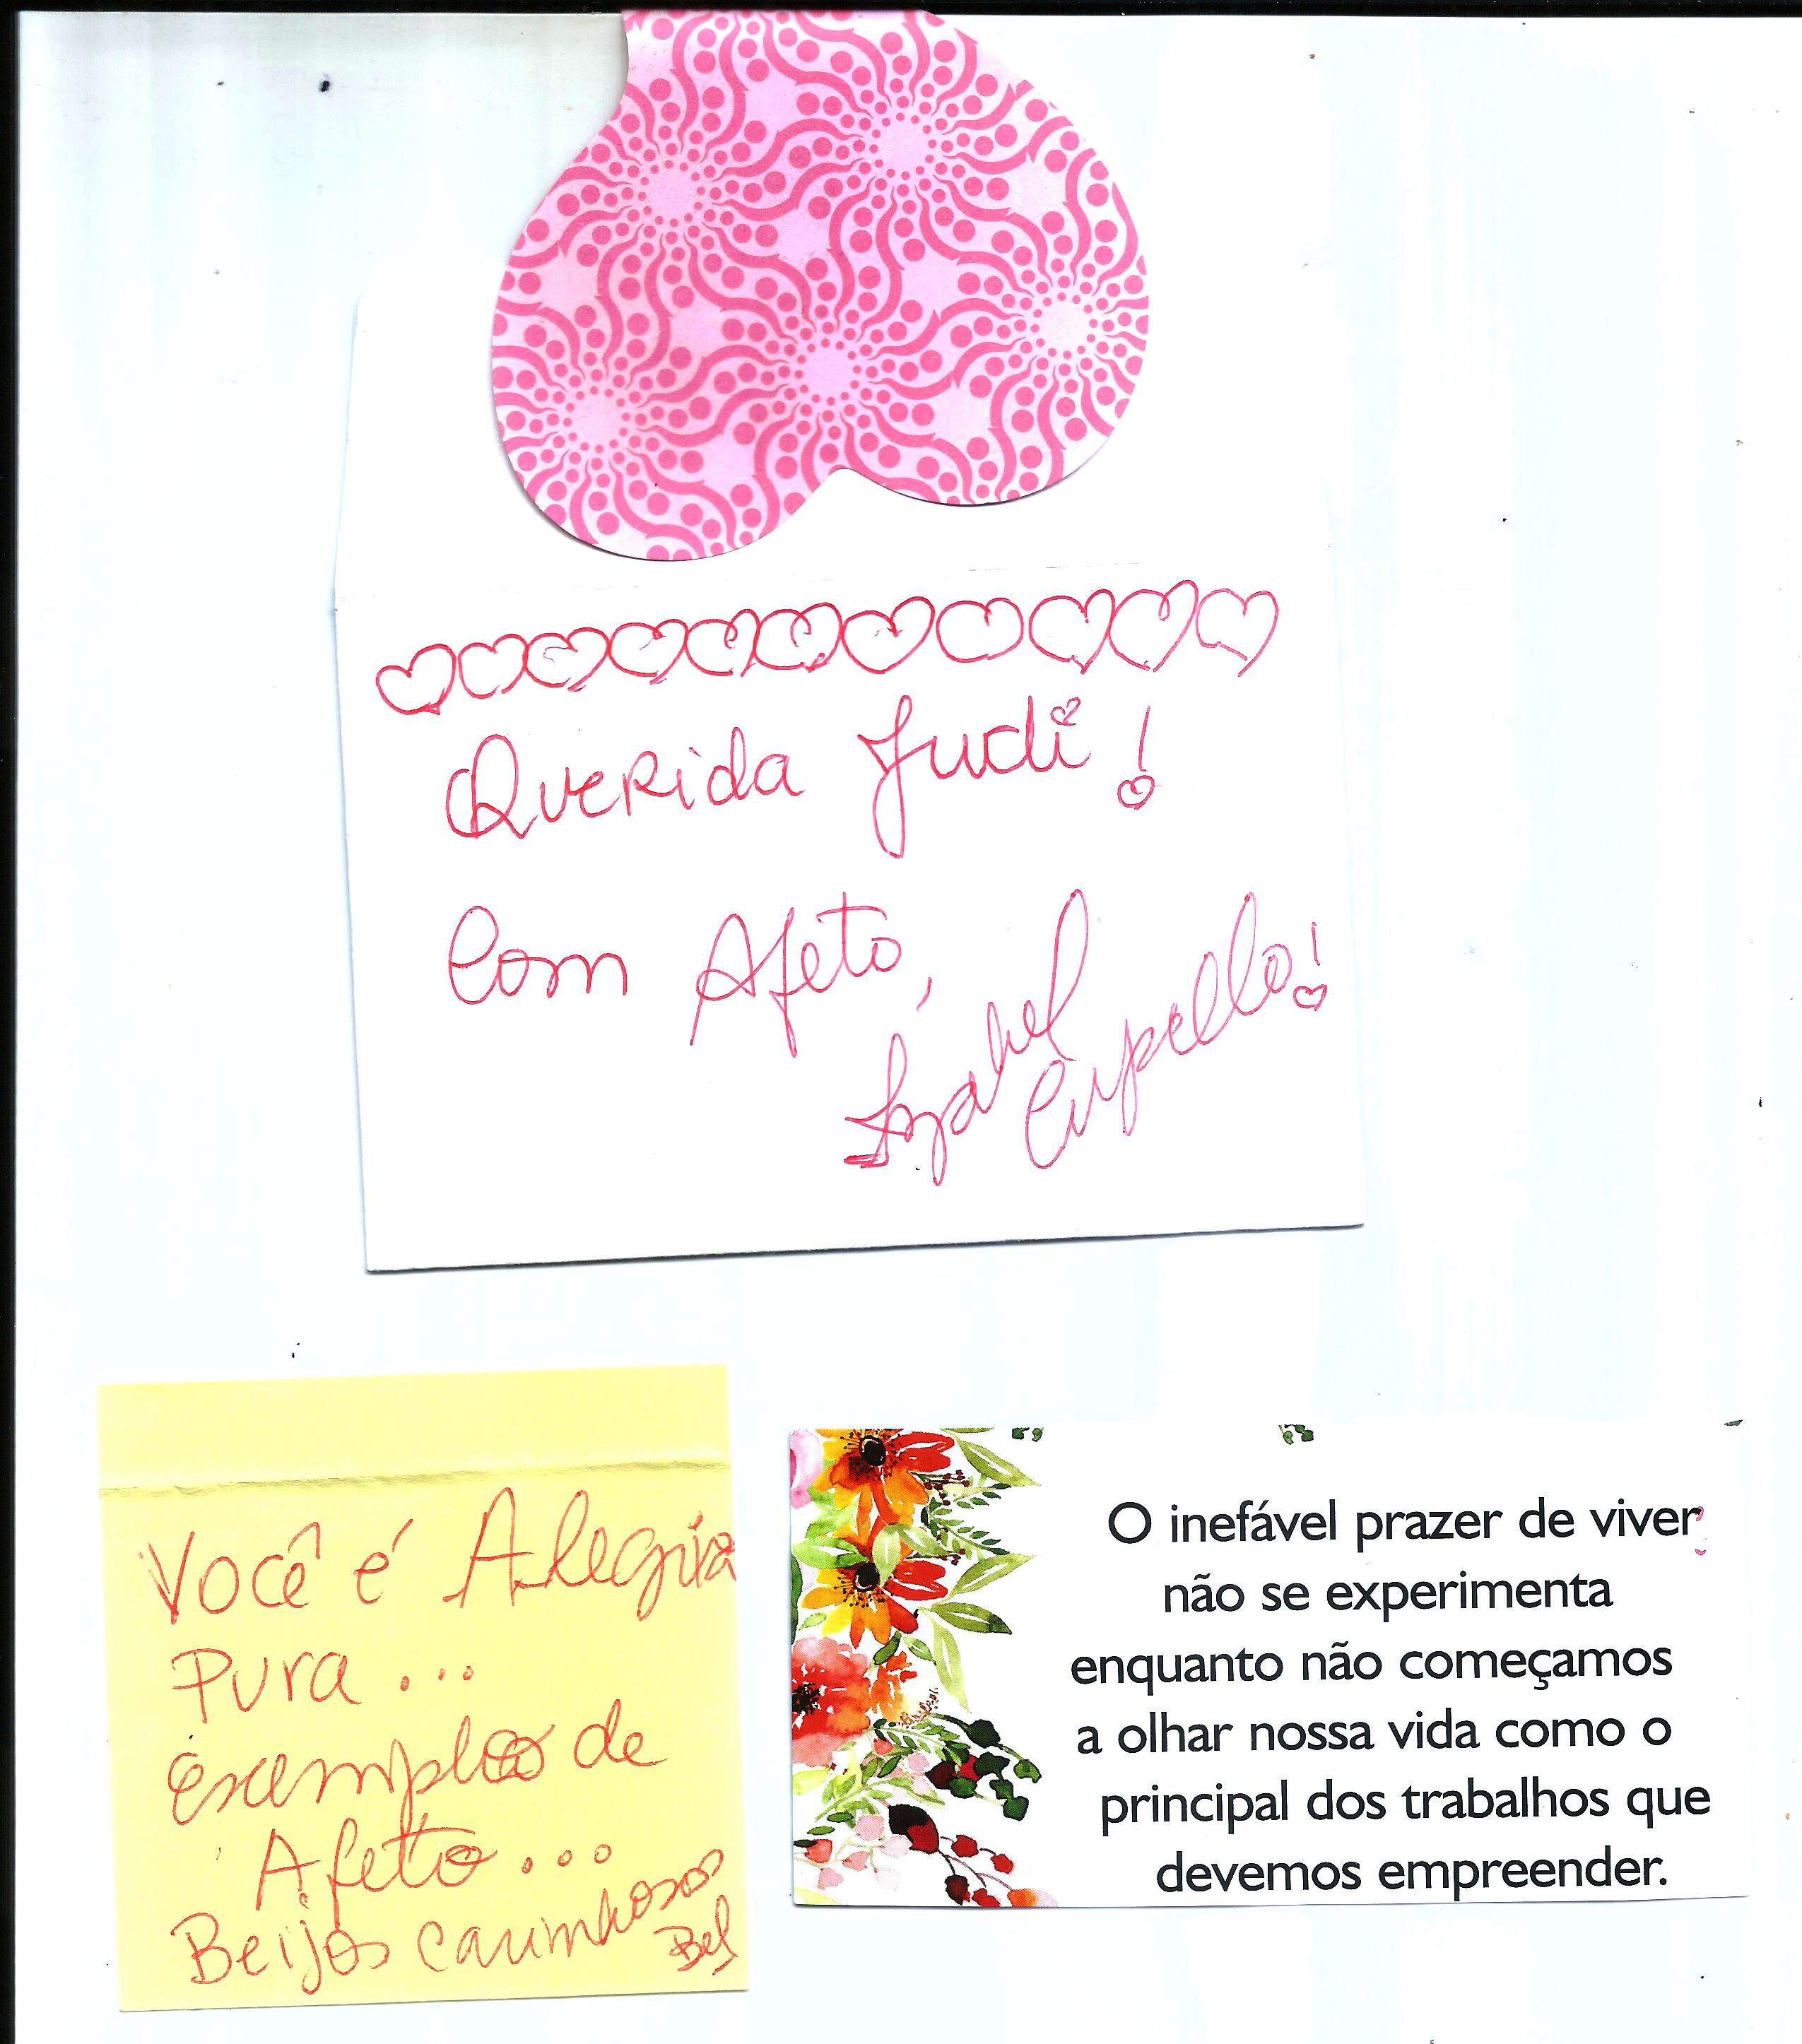 Querida Judi!
Com Afeto,
Izabel
Cupello!
Você é Alegria
Pura...
Exemplo de
Afeto...
Beijos carinhosos
Bel
O inefável prazer de viver
não se experimenta
enquanto não começamos
a olhar nossa vida como o
principal dos trabalhos que
devemos empreender.